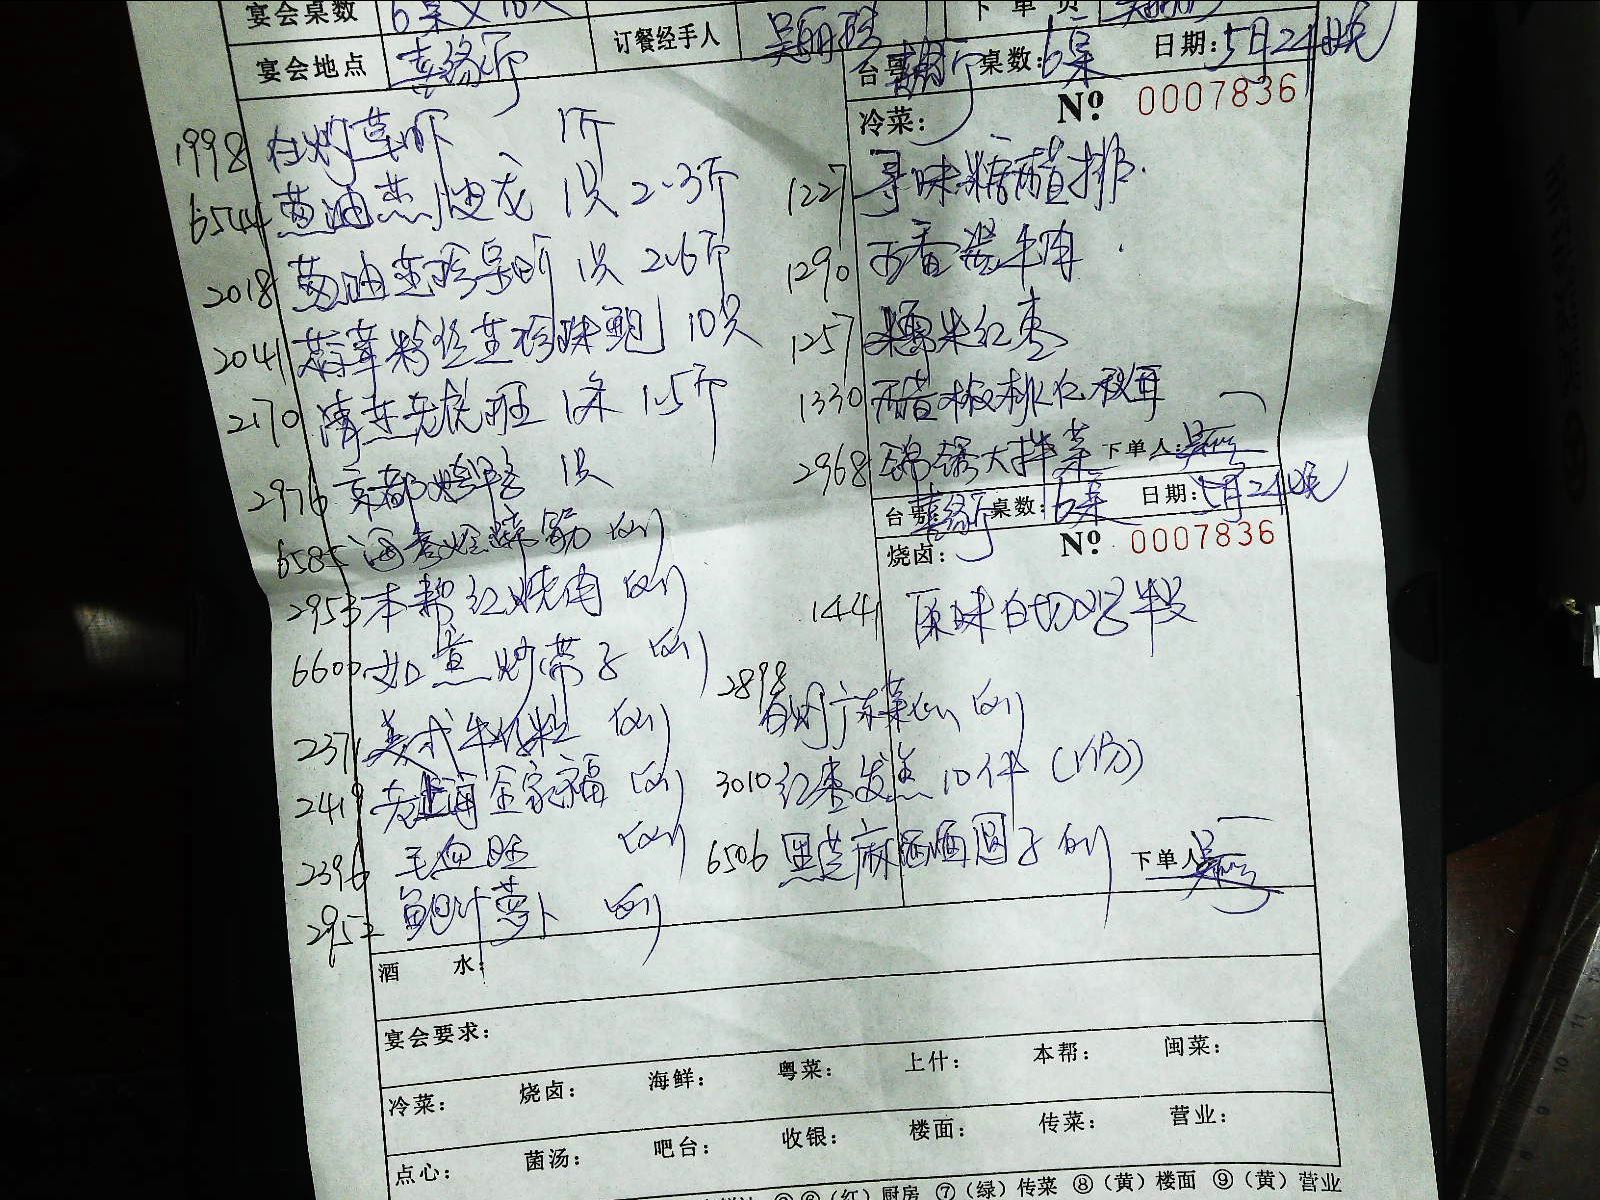 宴会桌数 6桌×10人
下单员
宴会地点 喜缘厅 订餐经手人
台号 桌数:6桌 日期:5月24晚
冷菜: № 0007836
1998 白灼草虾 1斤
6544 葱油蒸 龙 1只 2.3斤
2018 葱油蒸珍宝 1只 2.6斤
2041 蒜茸粉丝蒸珍珠鲍 10只
2170 清蒸老虎斑 1条 1.5斤
2976 京都 1只
6585 海参烩蹄筋 例
2953 本帮红烧肉 例
6600 如意炒带子 例
2371 美式牛仔粒 例
2419 老上海全家福 例
2396 毛血旺 例
2952 鲍汁萝卜 例
1227 寻味糖醋排
1290 牛肉
1257 糯米红枣
1330 醋椒桃仁秋耳
2968 锦绣大拌菜 下单人:
台号 喜缘厅 桌数:6桌 日期:5月24晚
烧卤: № 0007836
1441 原味白切鸡半只
2898 白灼广东菜心 例
3010 红枣发糕 10件 (1份)
6506 黑芝麻 圆子 例 下单人
酒 水:
宴会要求:
冷菜: 烧卤: 海鲜: 粤菜: 上什: 本帮: 闽菜:
点心: 菌汤: 吧台: 收银: 楼面: 传菜: 营业:
(红)厨房 ⑦(绿)传菜 ⑧(黄)楼面 ⑨(黄)营业